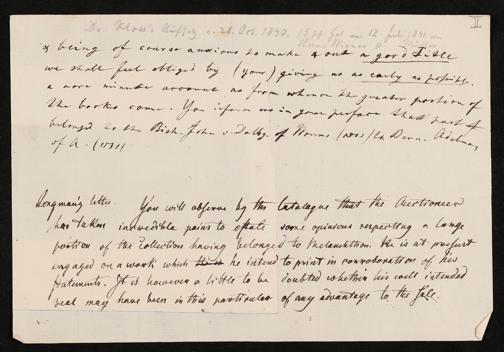 II
Dr. Kloss's Aufsatz v. 20. Oct. 1840. 15 12 Feb 1841 an
& being of course anxious to make out a good Title
we shall feel obliged by (your) giving us as early as possible
a more minute account as from whence the greater portion of
the books came. You inform us in your preface that part of
belonged to the Bish. John v. Dalberg of Worms to Dean. Adelman
of A.
Longman's letter. You will observe by the Catalogue that the Auctioneer
has taken incredible pains to state some opinions respecting a large
portion of the Collection having belonged to Melanchthon. He is at present
engaged on a work which he intend to print in corroboration of his
statements. It is however a little to be doubted whether his well intended
zeal may have been in this particular of any advantage to the Sale.